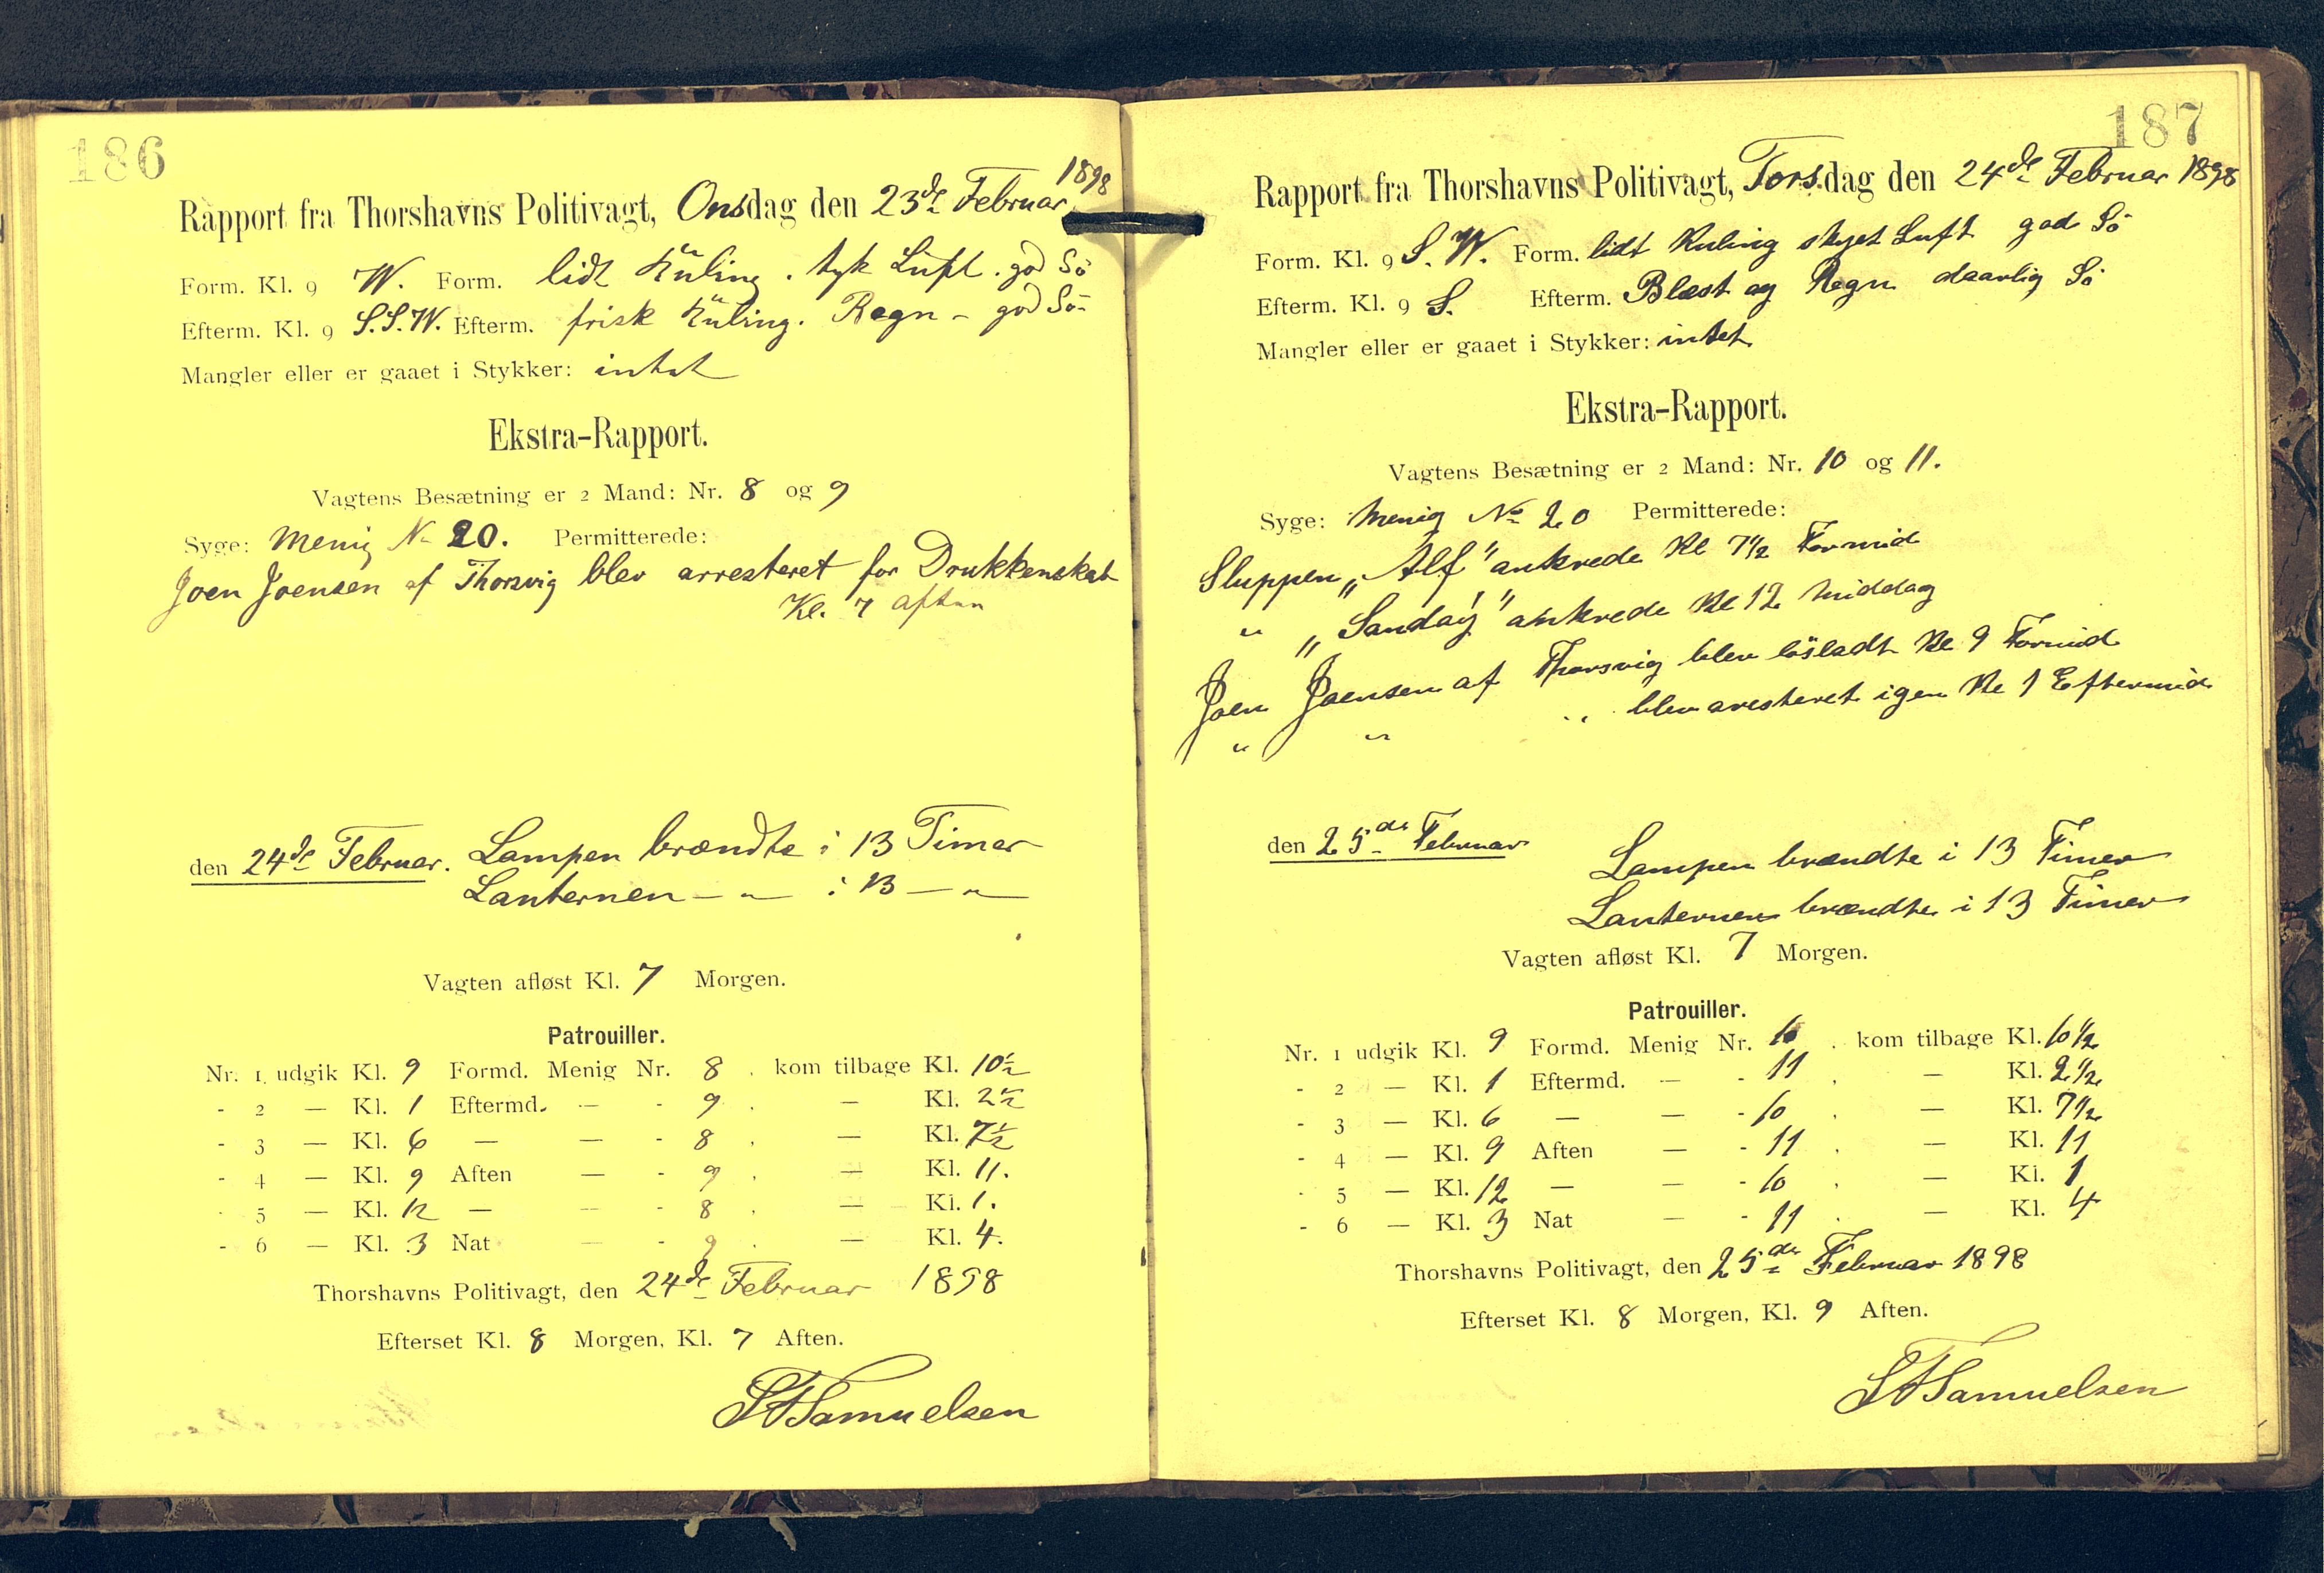 186
Rapport fra Thorshavns Politivagt, Onsdag den 23de Februar 1898
Form. Kl. 9 W. Form. lidt Kuling. tyk Luft. god Sö
Efterm. Kl. 9 S.S.W. Efterm. frisk Kuling. Regn - god Sö-
Mangler eller er gaaet i Stykker: intet
Ekstra-Rapport.
Vagtens Besætning er 2 Mand: Nr. 8 og 9
Syge: Menig No 20. Permitterede:
Joen Joensen af Thorsvig blev arresteret for Drukkenskab
Kl. 7 Aften
den 24de Februar. Lampen brændte i 13 Timer
Lanternen - " - i 13 - "
Vagten afløst Kl. 7 Morgen.
Patrouiller.
Nr. 1 udgik Kl. 9 Formd. Menig Nr. 8 . kom tilbage Kl. 10½
- 2 — Kl. 1 Eftermd. — - 9 . — Kl. 2½
- 3 — Kl. 6 — — - 8 . — Kl. 7½
- 4 — Kl. 9 Aften — - 9 . — Kl. 11.
- 5 — Kl. 12 — — - 8 . — Kl. 1.
- 6 — Kl. 3 Nat — - 9 . — Kl. 4.
Thorshavns Politivagt, den 24de Februar 1898
Efterset Kl. 8 Morgen, Kl. 7 Aften.
Samuelsen
187
Rapport fra Thorshavns Politivagt, Torsdag den 24de Februar 1898
Form. Kl. 9 S.W. Form. lidt Kuling skyet Luft god Sö
Efterm. Kl. 9 S. Efterm. Blæst og Regn daarlig Sö
Mangler eller er gaaet i Stykker: intet
Ekstra-Rapport.
Vagtens Besætning er 2 Mand: Nr. 10 og 11.
Syge: Menig No 20 Permitterede:
Sluppen „Alf" ankrede Kl 7½ Formid
" „Sandoy" ankrede Kl 12 Middag
Joen Joensen af Thorsvig blev lösladt Kl 9 Formid
" " " blev aresteret igen Kl 1 Eftermid
den 25de Februar
Lampen brændte i 13 Timer
Lanternen brændte i 13 Timer
Vagten afløst Kl. 7 Morgen.
Patrouiller.
Nr. 1 udgik Kl. 9 Formd. Menig Nr. 10 . kom tilbage Kl. 10½
- 2 — Kl. 1 Eftermd. — - 11 . — Kl. 2½
- 3 — Kl. 6 — — - 10 . — Kl. 7½
- 4 — Kl. 9 Aften — - 11 . — Kl. 11
- 5 — Kl. 12 — — - 10 . — Kl. 1
- 6 — Kl. 3 Nat — - 11 . — Kl. 4
Thorshavns Politivagt, den 25de Februar 1898
Efterset Kl. 8 Morgen, Kl. 9 Aften.
Samuelsen